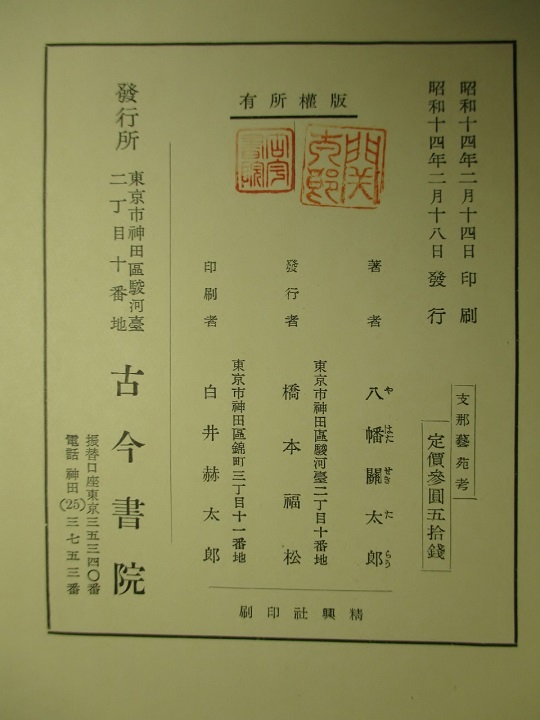 昭和十四年二月十四日印刷
昭和十四年二月十八日發行
支那藝苑考
定價參圓五拾錢
版權所有
關太郎
古今書院
著者 八幡關太郎
や はた せき た らう
東京市神田區駿河臺二丁目十番地
發行者 橋本福松
東京市神田區錦町三丁目十一番地
印刷者 白井赫太郎
精興社印刷
發行所
東京市神田區駿河臺
二丁目十番地
古今書院
振替口座東京三五三四〇番
電話神田(25)三七五三番